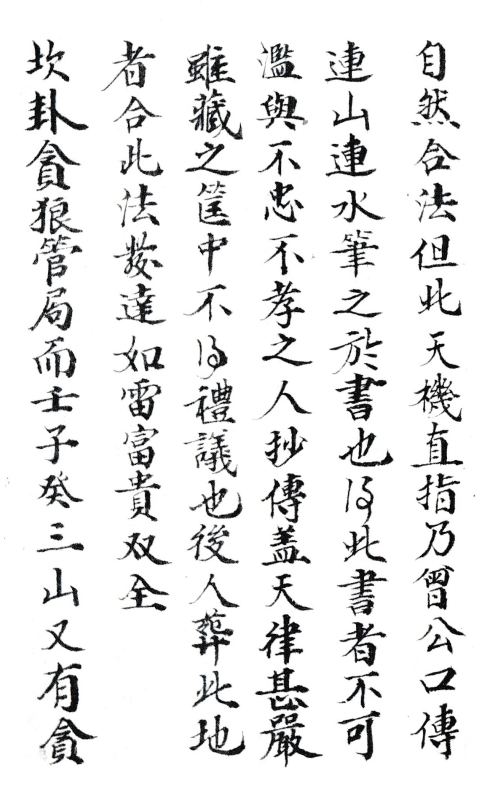 自然合法但此天機直指乃曾公口傳
連山連水筆之於書也得此書者不可
濫與不忠不孝之人抄傳盖天律甚嚴
雖藏之筐中不得禮議也後人葬此地
者合此法發達如雷富貴双全
坎卦貪狼管局而壬子癸三山又有貪